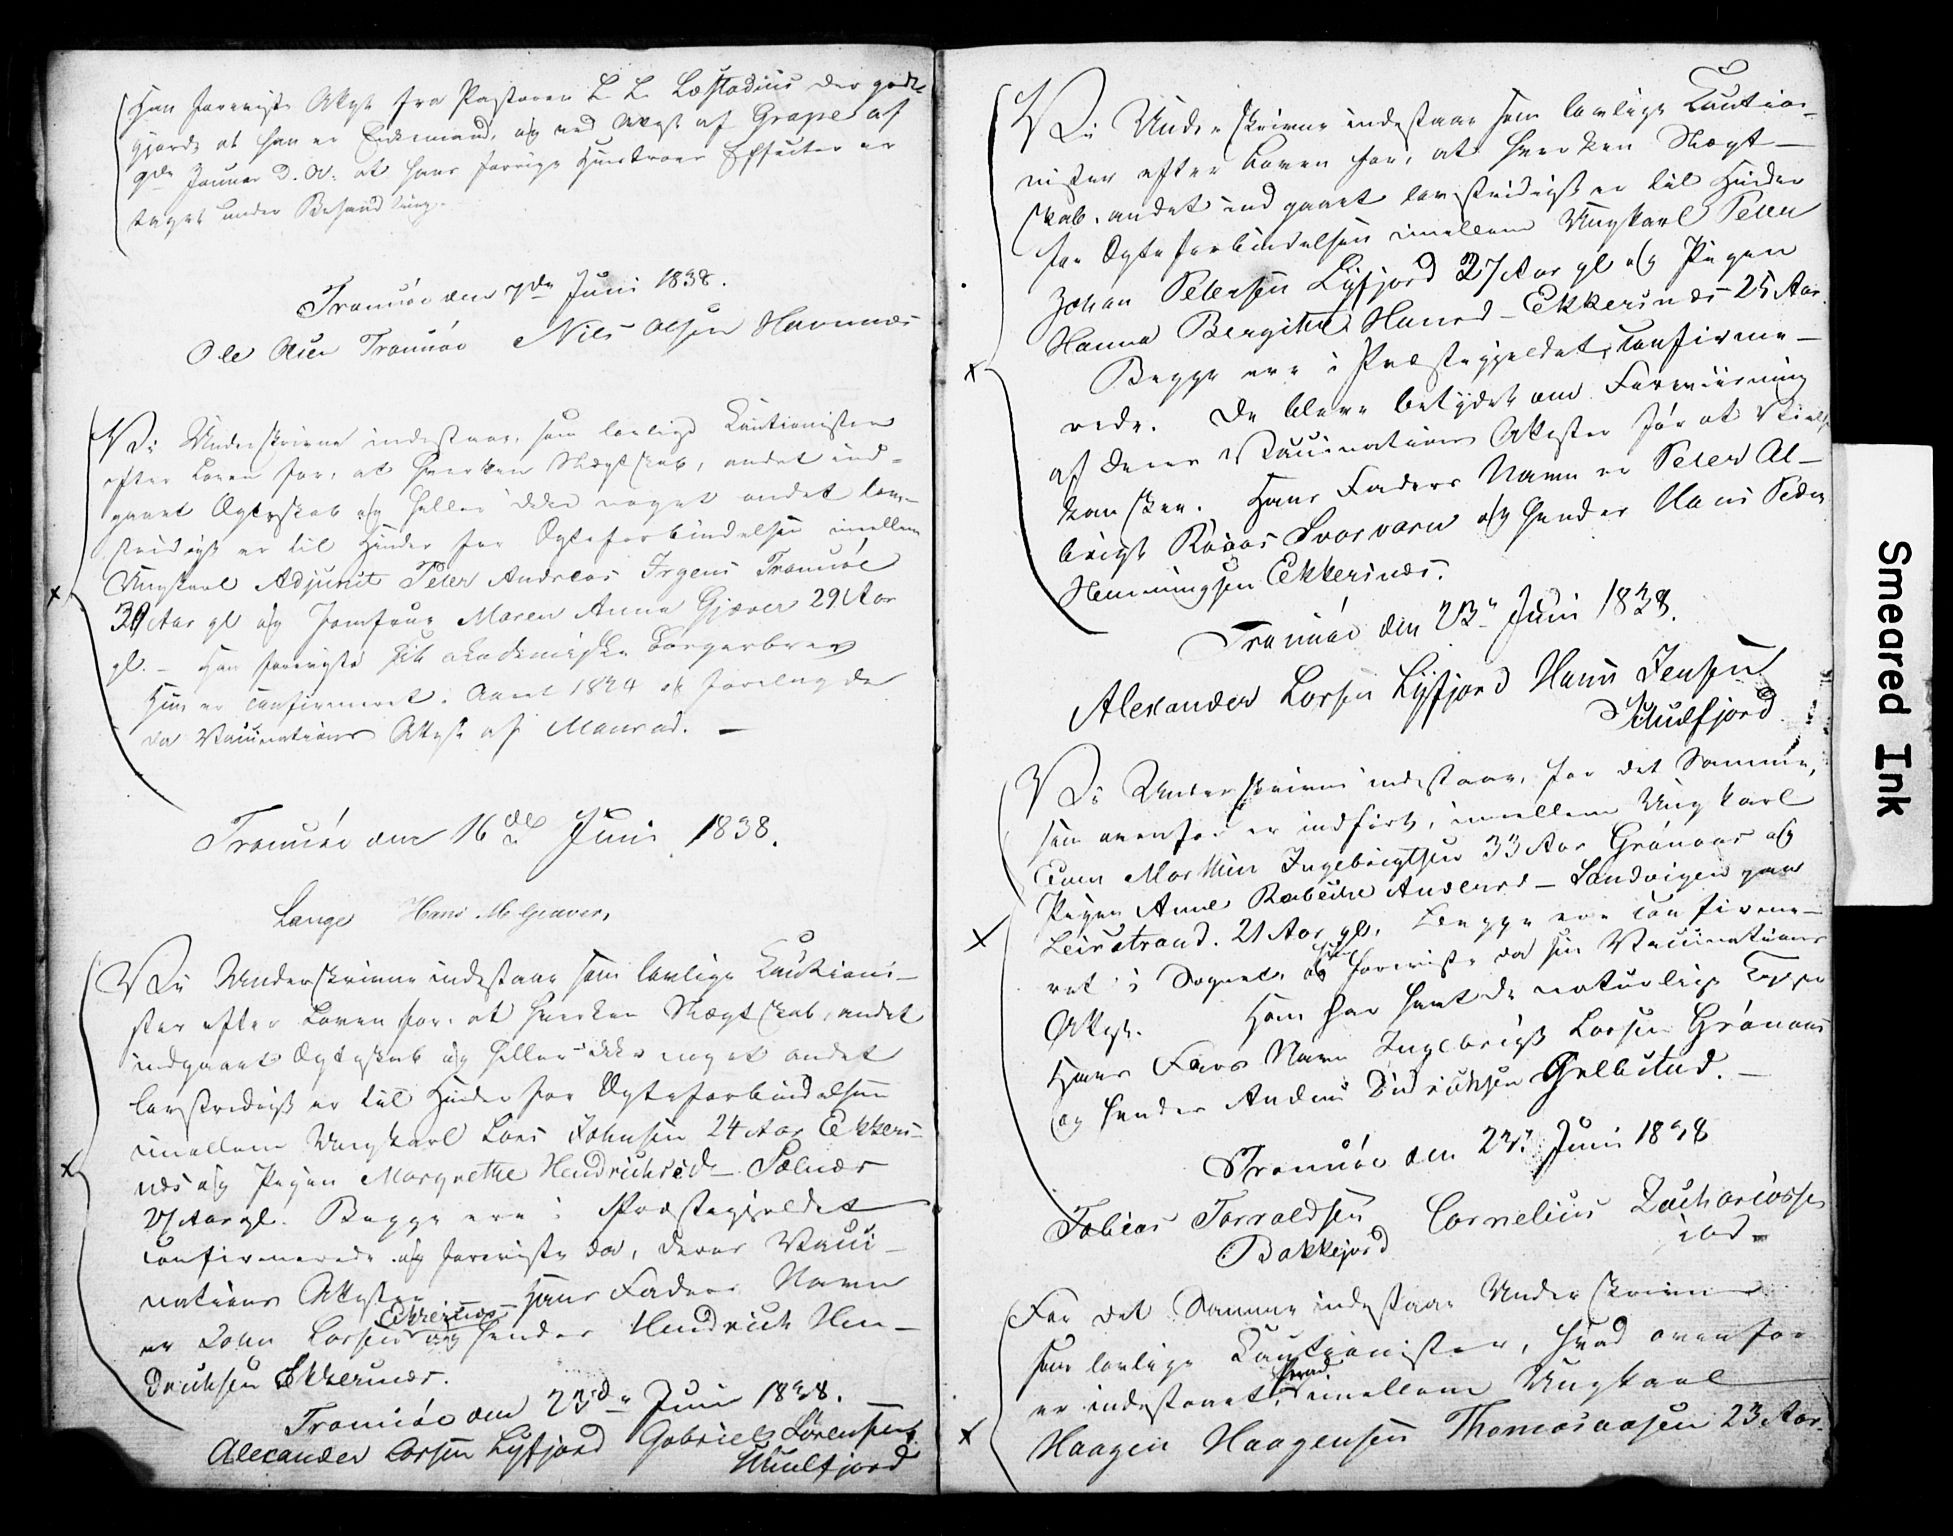 Han foreviste Attest fra Pastoren L. L. Læstadius der godt
gjorde at han er Enkemand, og ved Attest af Grape af
9de Januar d. A. at hans forrige Hustroes Effecter er
taget under Behandling.
Tromsöe den 7de Juni 1838.
Ole Olsen Tromsöe Nils Olsen Havnnæs
Vi Underskrivne indestaar, som lovlige Cautionister
efter Loven for, at hverken Slægtskab, andet ind-
gaaet Ægteskab og heller ikke noget andet lov-
stridigt er til Hinder for Ægteforbindelsen imellem
Ungkarl Adjunct Peter Andreas Irgens Tromsöe
Aar gl og Jomfrue Maren Anna Gjæver 29 Aar
gl. - Han foreviste sit akademiske Borgerbrev
Hun er confirmeret. Aaret 1824 og forelagde
da Vaccinations Attest af Monrad. -
Tromsöe den 16de Juni 1838.
Lange Hans M. Giæver,
Vi Underskrivne indestaar som lovlige Cautioni-
ster efter Loven for at hverken Slægtskab, andet
indgaaet Ægteskab og heller ikke noget andet
lovstridigt er til Hinder for Ægteforbindelsen
imellem Ungkarl Lars Johnsen 24 Aar Ekkers-
næs og Pigen Margrethe Hendrichsd - Sælnæs
Aar gl. Begge ere i Præstegjeldet
confirmerede og foreviste da, deres Vacci-
nations Attester Hans Faders Navn
er John Larsen Ekkersnæs og hendes Hendrich Hen-
drichsen Ekkersnæs.
Tromsöe den 23de Juni 1838.
Alexander Larsen Lyfjord Gabriel Sörensen
Skulfjord
Vi Underskrivne indestaar som lovlige Caution-
nister efter Loven for, at hverken Slægt-
skab, andet indgaaet lovstridigt er til Hinder
for Ægteforbindelsen imellem Ungkarl Peter
Johan Petersen Lyfjord 27 Aar gl og Pigen
Hanna Bergithe Hansd - Ekkersnæs 25 Aar
Begge ere i Præstegjeldet, confirme-
rede. De bleve betydet om Foreviisning
af deres Vaccinations Attester før at Vielse
kan skee. Hans Faders Navn er Peter Al-
brigt Svarvarn og hendes Hans Peder
Henningsen Ekkersnæs.
Tromsöe den 23de Juni 1838.
Alexander Larsen Lyfjord Hans Jensen
Skulfjord
Vi Underskrivne indestaar, for det Samme,
som ovenfor er indført, imellem Ungkarl
Morthin Ingebrigtsen 33 Aar Grønaas og
Pigen Anne Andersd - Sandvigen paa
Leirstrand. 21 Aar gl. Begge ere confirme-
ret i Sognet, og foreviste da sin Vaccinations
Attest. Ham har havt de naturlige Copper
Hans Fars Navn Ingebrigt Larsen Grønaas
og hendes Anders Didrichsen Gulbstad. -
Tromsöe den 23. Juni 1838
Tobias Torvaldsen Cornelius Zachariassen
Bakkejord
For det Samme indestaar Underskrivne
som lovlige Cautionister, hvad ovenfor
er indestaaet, imellem Ungkarl
Haagen Haagensen Thomasaasen 23 Aar.
Smeared Ink